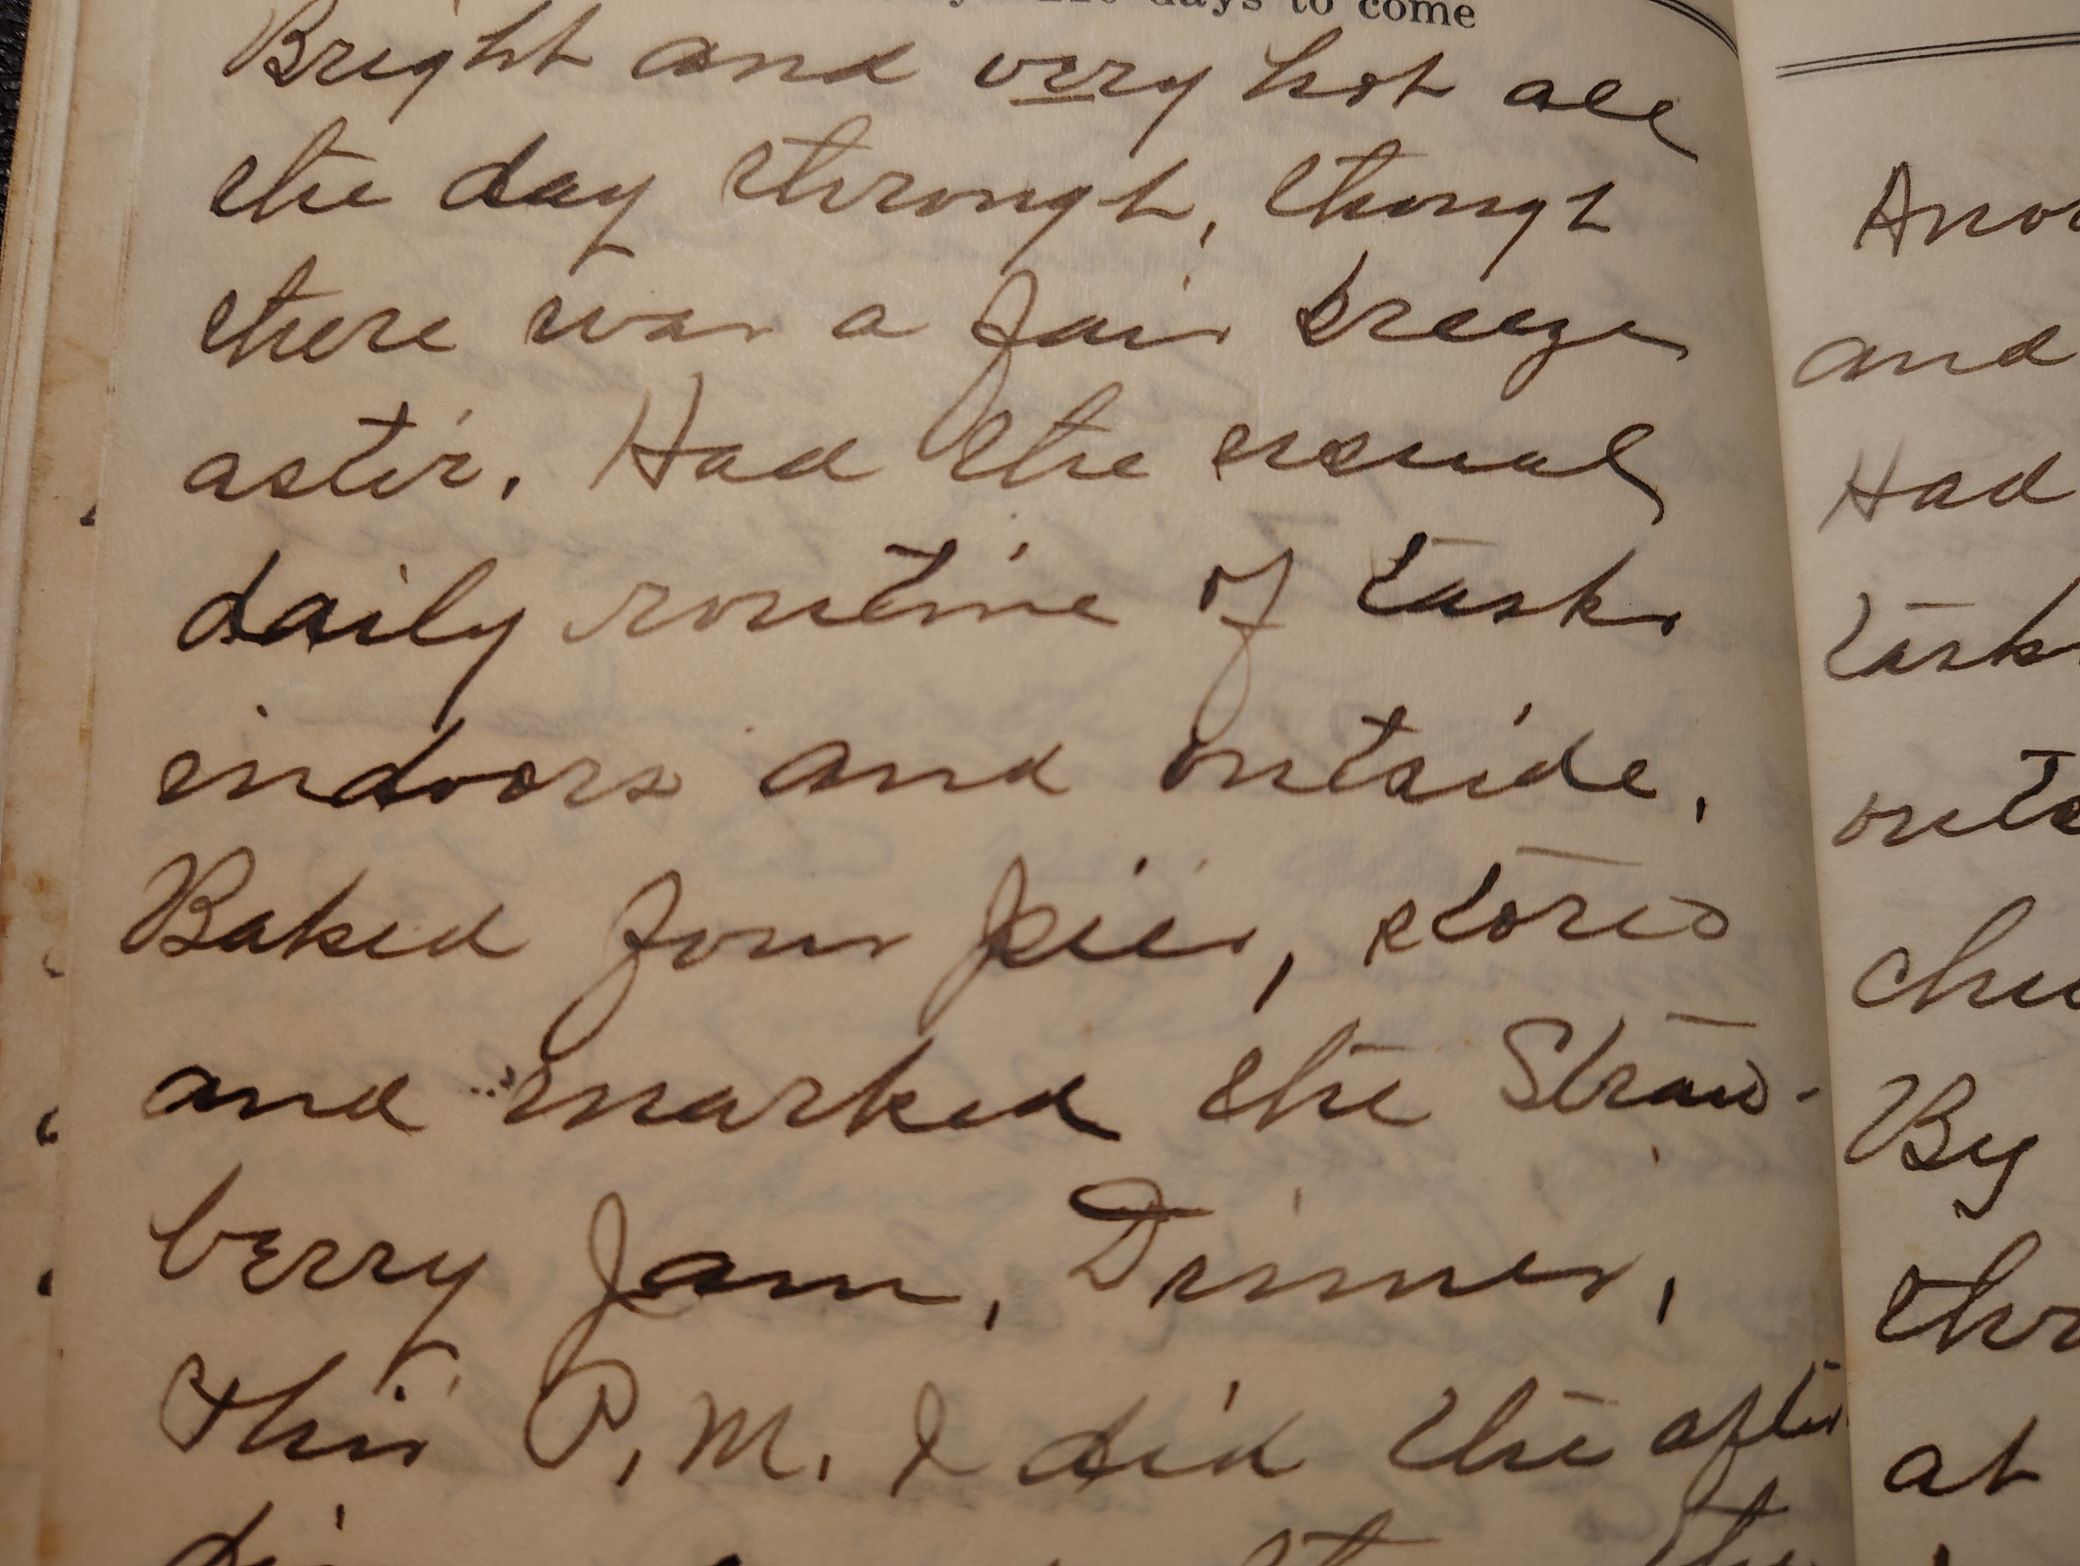 days to come
Bright and very hot all
the day through, though
there was a fair breeze
astir. Had the usual
daily routine of tasks
indoors and outside.
Baked four pies, stored
and marked the Straw-
berry Jam, Dinner,
this P.M. I did the after
Anot
and
Had
task
outs
chu
By
thro
at